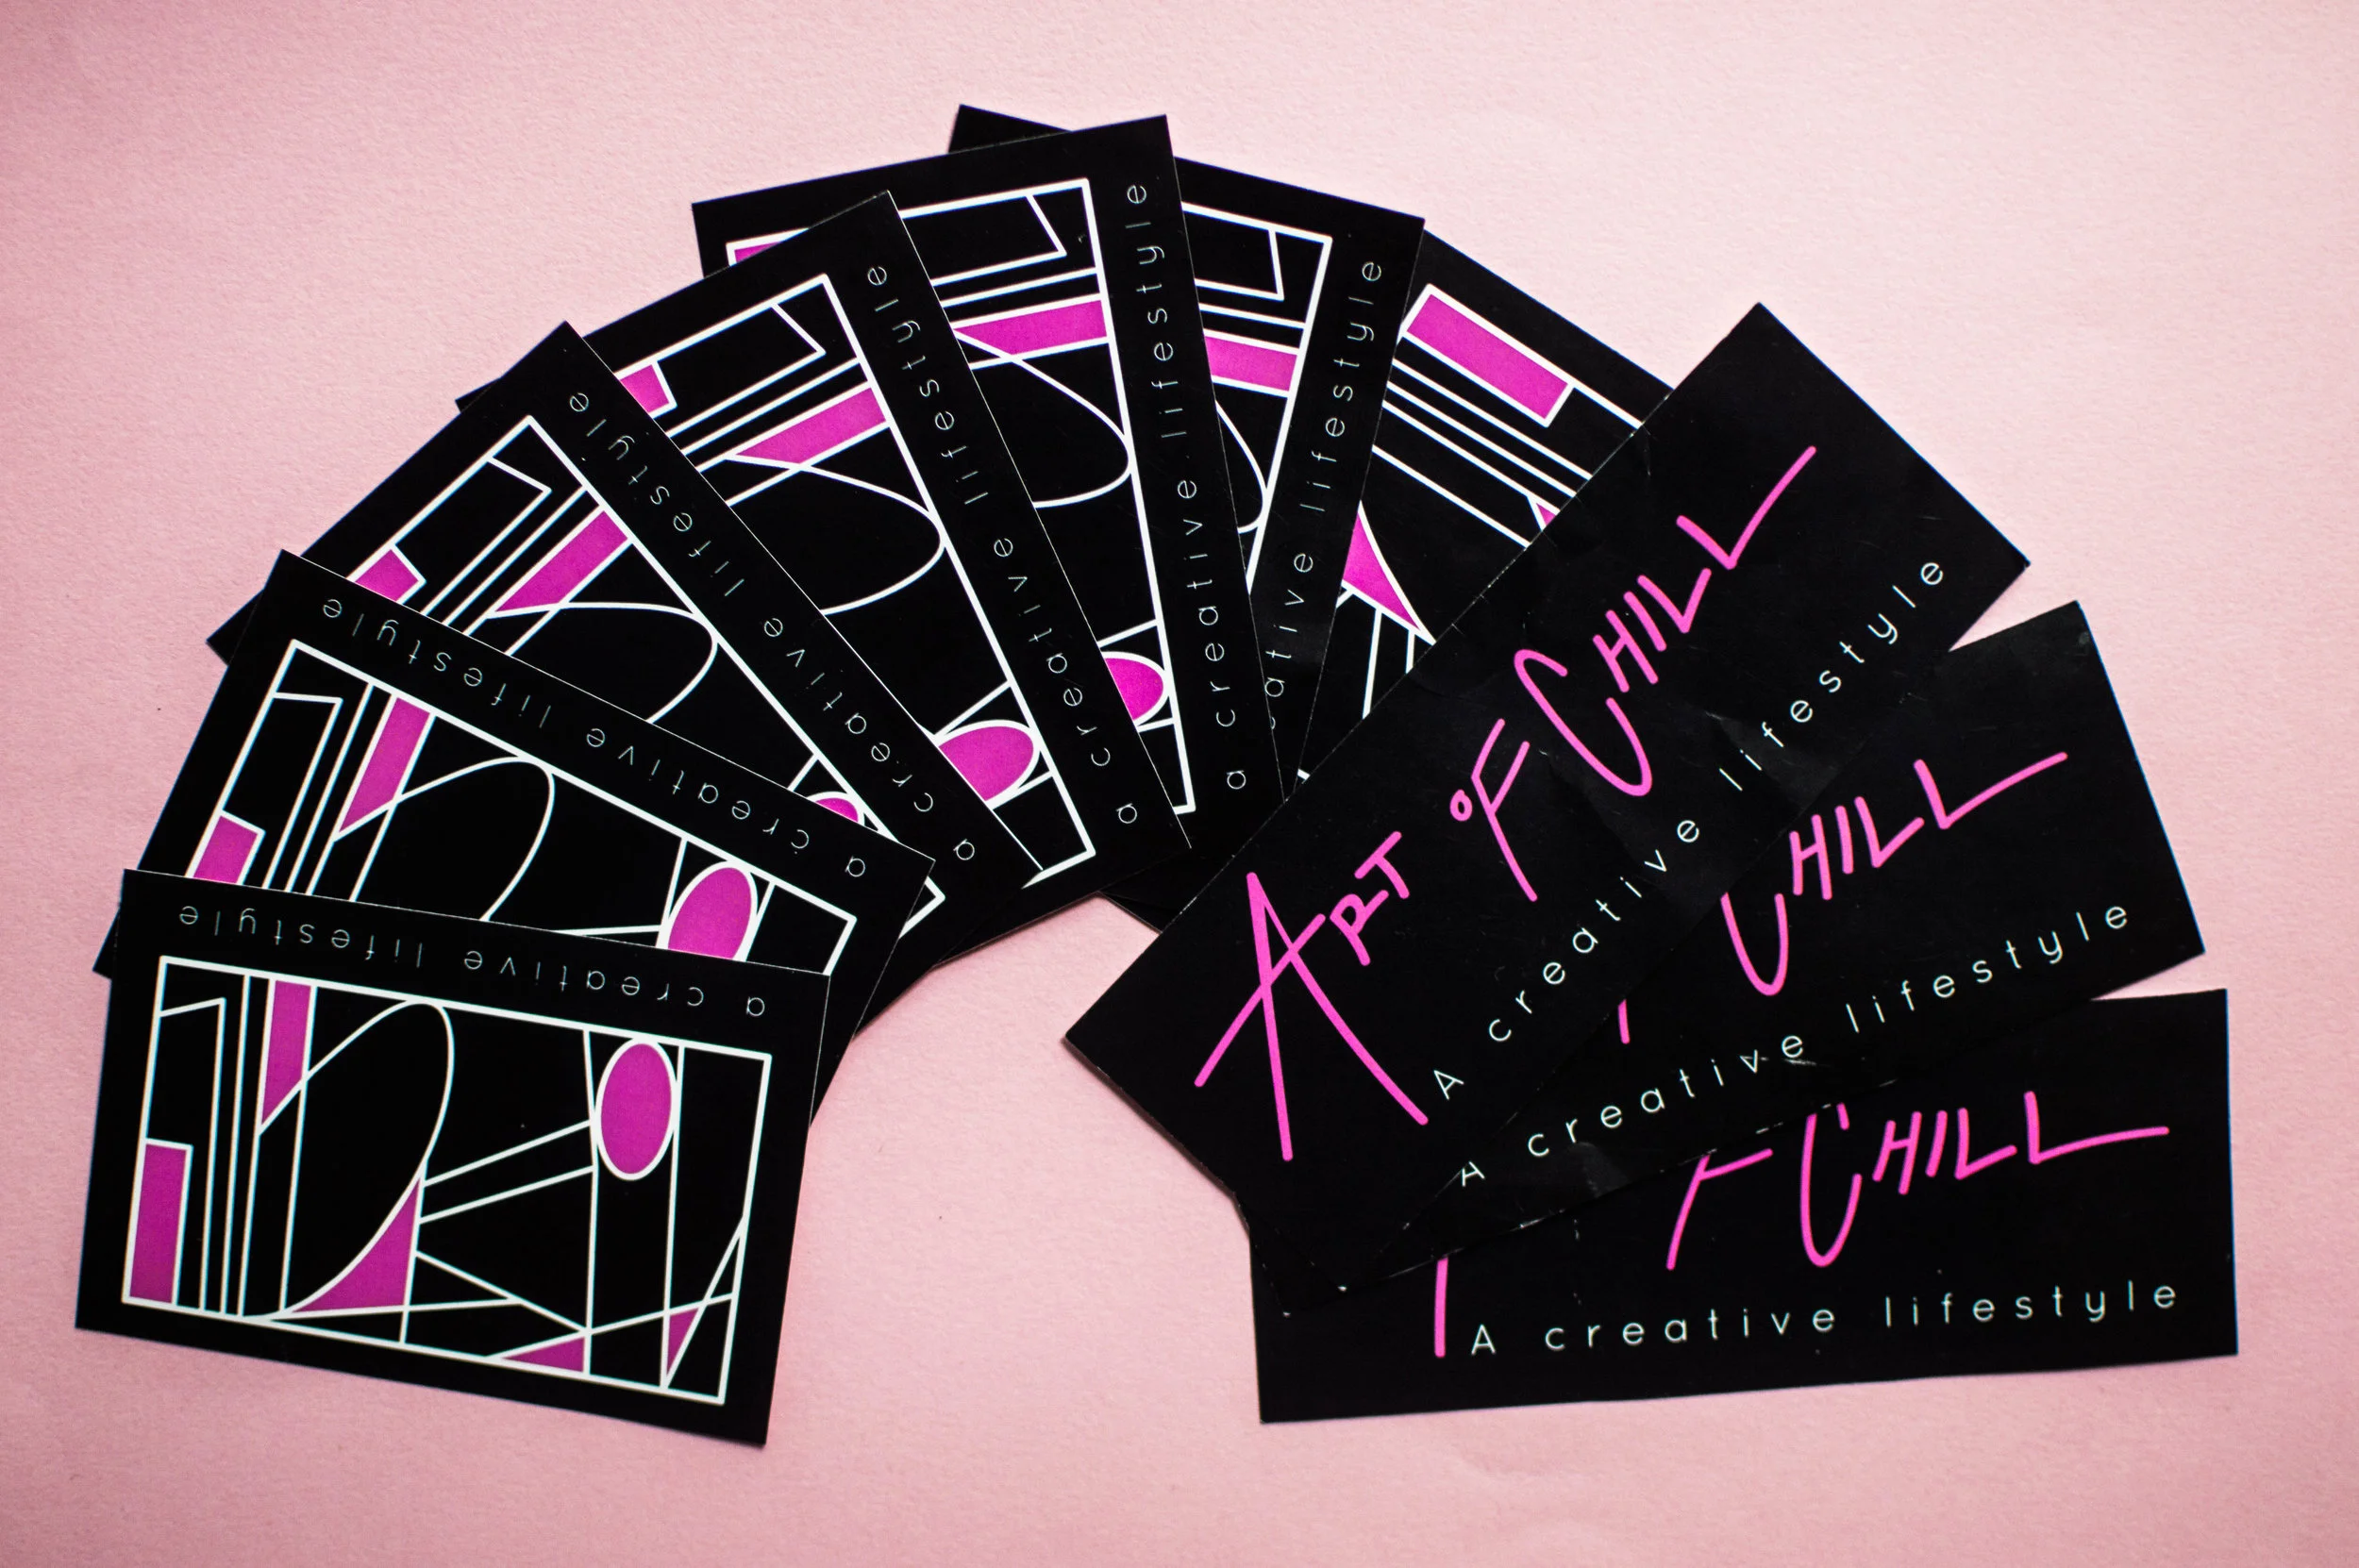 a creative lifestyle
a creative lifestyle
a creative lifestyle
a creative lifestyle
a creative lifestyle
creative lifestyle
ART OF CHILL
A creative lifestyle
CHILL
A creative lifestyle
F CHILL
A creative lifestyle